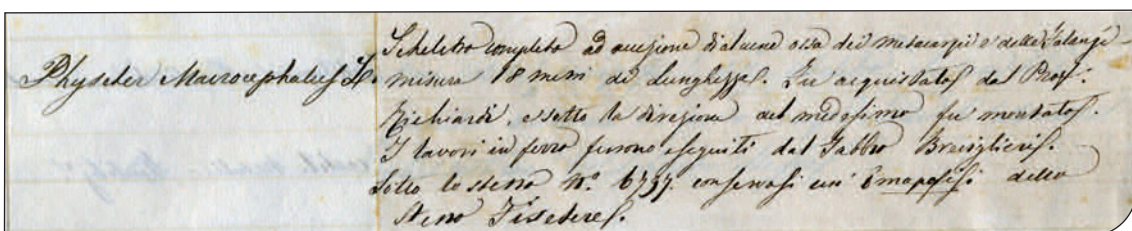 Physeter Macrocephalus L.
Scheletro completo ad eccezione di alcune ossa dei metacarpi e delle falangi -
misura 18 metri di lunghezza. Fu acquistato dal Prof.
Richiardi, e sotto la direzione del medesimo fu montato.
I lavori in ferro furono eseguiti dal Fabbro
Sotto lo stesso N.º 6737. conservasi un' Emapofisi dello
stesso Fisetere.